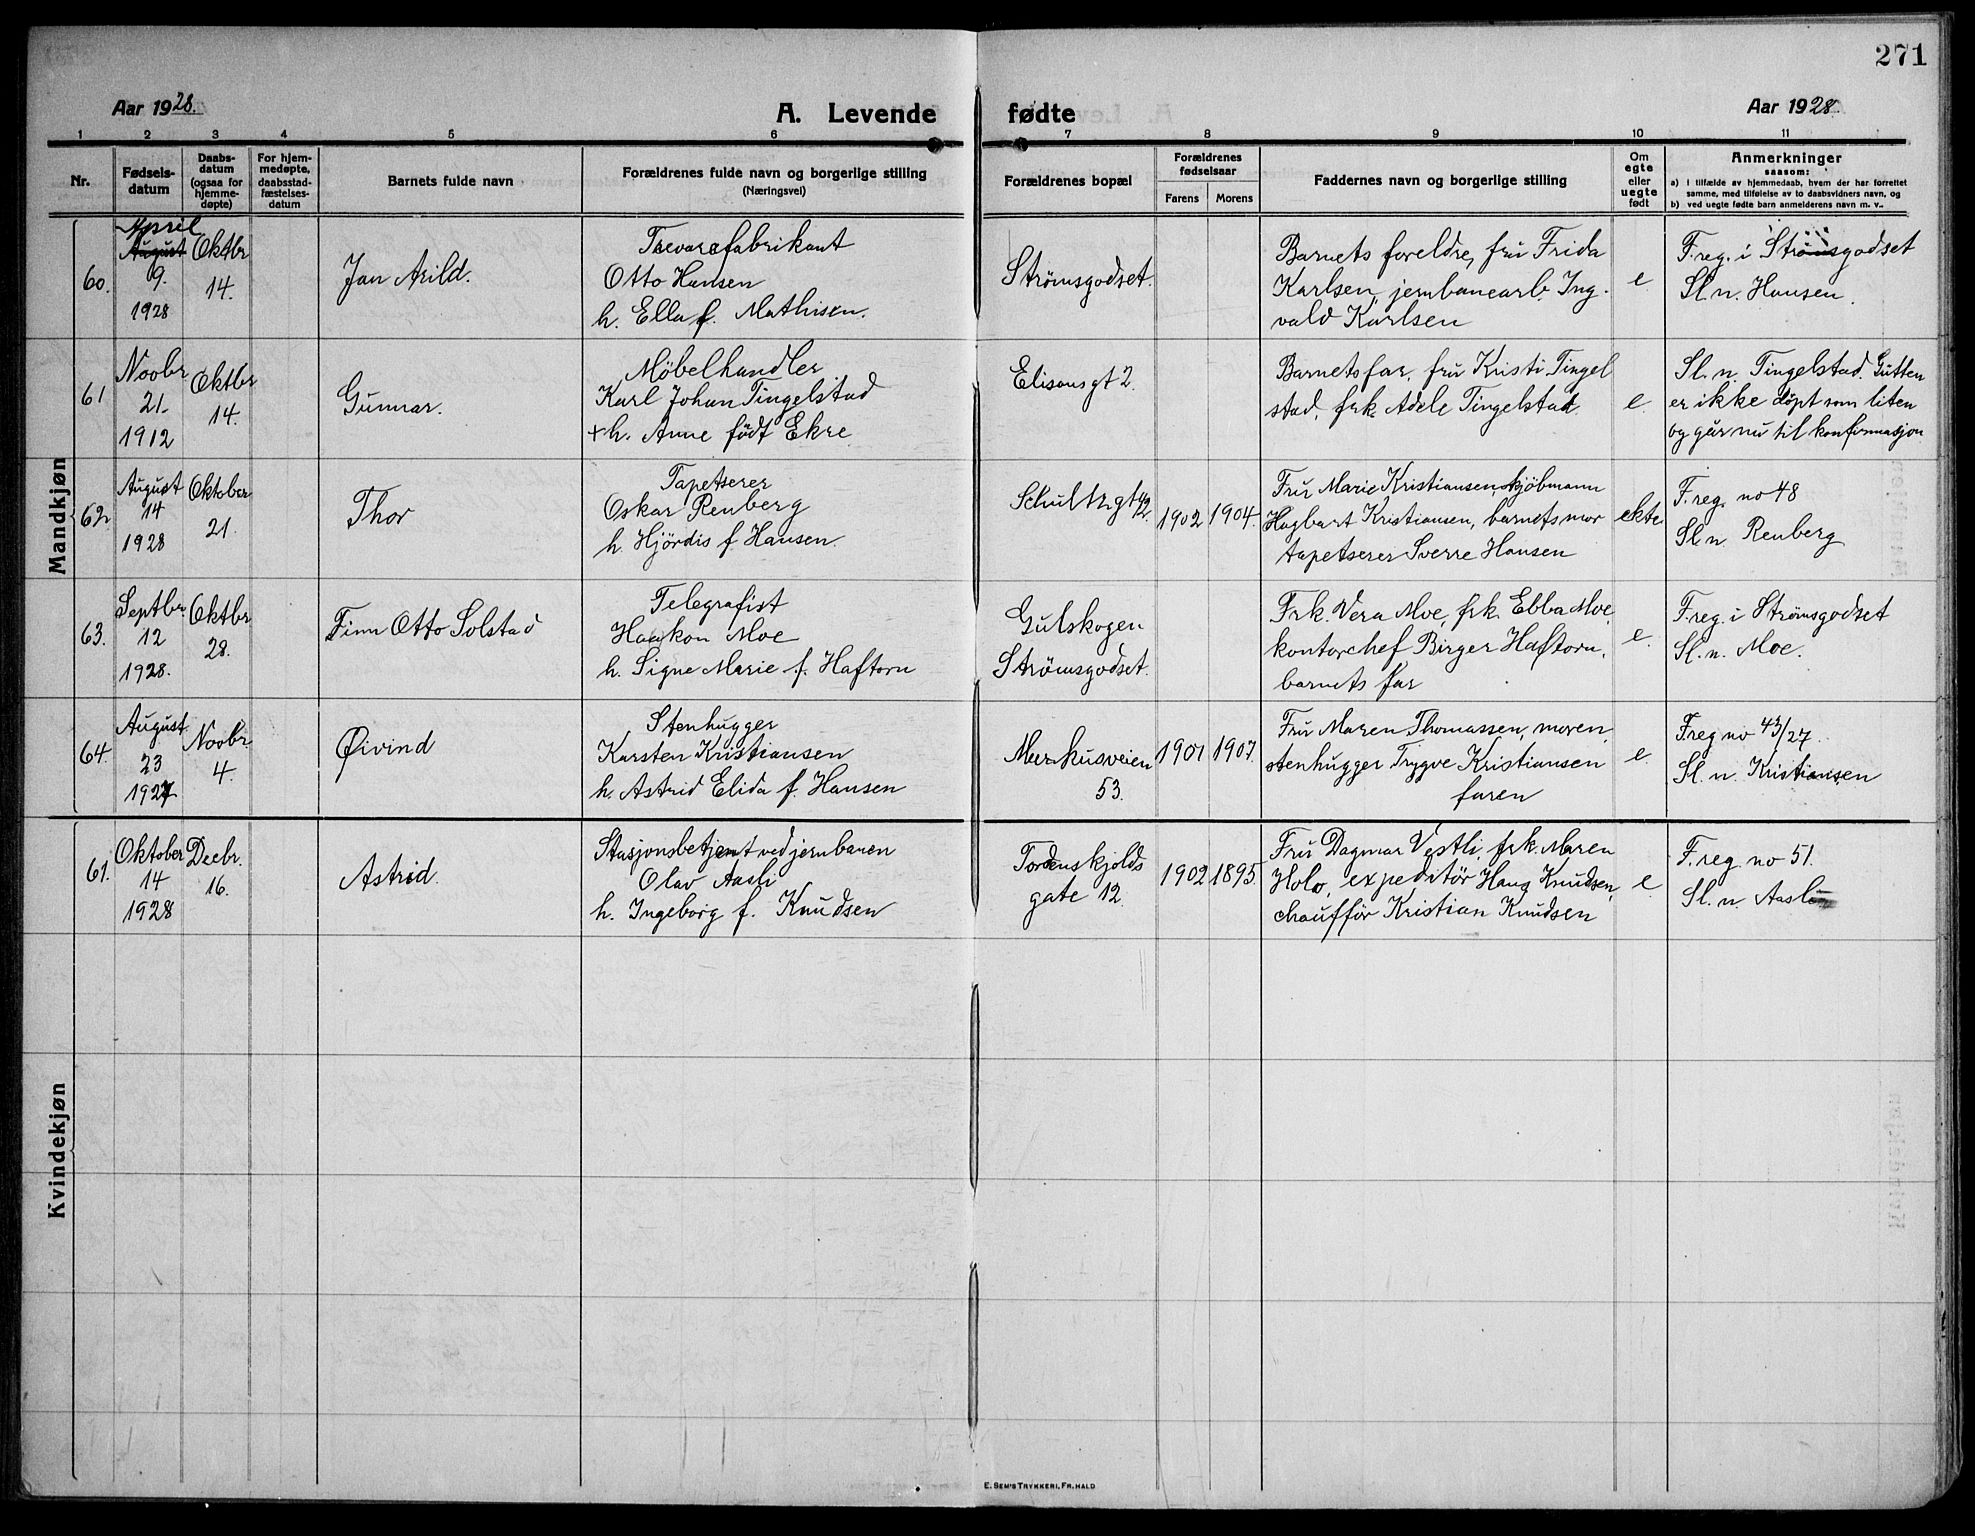 271
Aar 1928.
A. Levende fødte
Aar 1928.
1 2 3 4 5 6 7 8 9 10 11
Nr.
Fødsels-
datum
Daabs-
datum
(ogsaa for
hjemme-
døpte)
For hjem-
medøpte,
daabsstad-
fæstelses-
datum
Barnets fulde navn
Forældrenes fulde navn og borgerlige stilling
(Næringsvei)
Forældrenes bopæl
Forældrenes
fødselsaar
Farens Morens
Faddernes navn og borgerlige stilling
Om
egte
eller
uegte
født
Anmerkninger
saasom:
a) i tilfælde av hjemmedaab, hvem der har forrettet
samme, med tilføielse av to daabsvidners navn, og
b) ved uegte fødte barn anmelderens navn m. v..
Mandkjøn
60.
April
August
9.
1928
Oktbr
14.
Jan Arild.
Trevarefabrikant
Otto Hansen
h. Ella f. Mathisen.
Strømsgodset.
Barnets foreldre, fru Frida
Karlsen, jernbanearb. Ing-
vald Karlsen
e
F. reg. i Strømsgodset
Sl. n. Hansen.
61
Novbr
21.
1912
Oktbr
14.
Gunnar.
Møbelhandler
Karl Johan Tingelstad
+ h. Anne født Ekre
Elisonsgt 2.
Barnets far, fru Kristi Tingel
stad, frk. Adele Tingelstad.
e.
Sl. n Tingelstad. Gutten
er ikke døpt som liten
og går nu til konfirmasjon
62
August
14
1928
Oktober
21.
Thor
Tapetserer
Oskar Renberg
h Hjördis f. Hansen.
Schultzgt 42.
1902 1904.
Fru Marie Kristiansen, kjöbmann
Hagbart Kristiansen, barnets mor
tapetserer Sverre Hansen
ekte
F. reg. no 48
Sl. n. Renberg
63.
Septbr.
12
1928.
Oktbr
28.
Finn Otto Solstad
Telegrafist
Haakon Moe
h. Signe Marie f. Haftorn
Gulskogen
Strømsgodset.
Frk. Vera Moe, frk. Ebba Moe,
kontorchef Birger Haftorn,
barnets far
e.
F. reg. i Strømsgodset
Sl. n. Moe.
64.
August
23
1927
Novbr.
4.
Øivind
Stenhugger
Karsten Kristiansen
h. Astrid Elida f. Hansen
53.
1901 1907.
Fru Maren Thomassen, moren,
stenhugger Trygve Kristiansen
faren
e.
F reg no 43/27.
Sl. n. Kristiansen
Kvindekjøn
61.
Oktober
14
1928
Decbr.
16.
Astrid.
Stasjonsbetjent ved jernbanen
Olav Aasli
h. Ingeborg f. Knudsen
Tordenskjolds
gate 12.
1902 1895.
Fru Dagmar Vestli, frk. Maren
Holo, expeditör Hans Knudsen,
chaufför Kristian Knudsen
e
F. reg. no 51.
Sl. n. Aasli
E. SEM'S TRYKKERI, FR.HALD